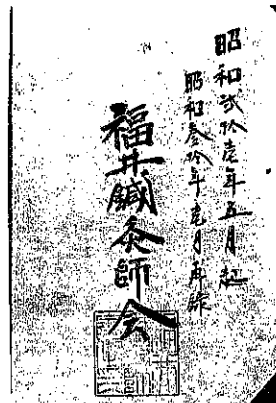 昭和弐拾壱年五月起
昭和参拾年壱月再録
福井鍼灸師会